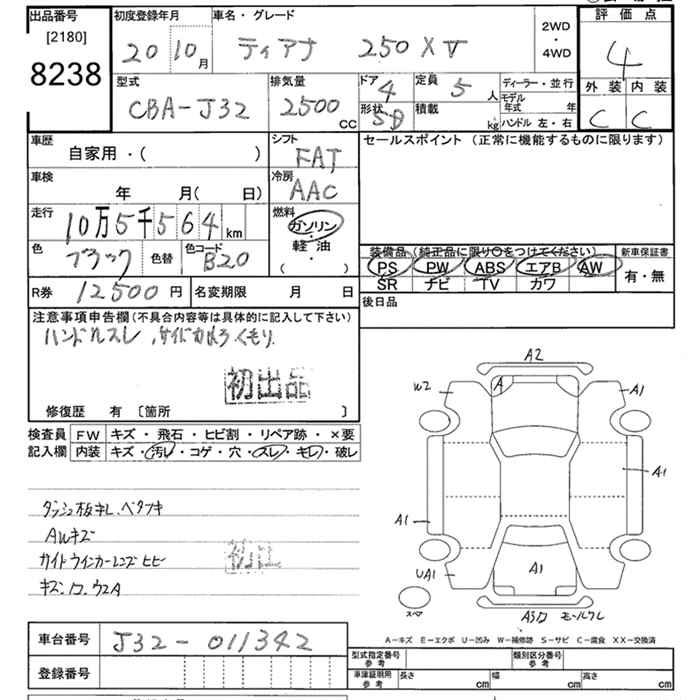 出品番号
[2180]
8238
初度登録年月
20 10月
車名・グレード
ティアナ 250XV
2WD
・
4WD
評価点
4
外装 内装
C C
型式
CBA-J32
排気量
2500
CC
ドア
4
形状
SD
定員
5
人
積載
kg
ディーラー・並行
モデル
年式 年
ハンドル 左・右
車歴
自家用・( )
シフト
FAT
セールスポイント (正常に機能するものに限ります)
車検
年 月( 日)
冷房
AAC
走行
10万5千564
km
燃料
ガソリン
・
軽油
( )
色
ブラック
色替
色コード
B20
装備品 (純正品に限り○をつけてください)
PS PW ABS エアB AW
SR ナビ TV カワ
新車保証書
有・無
R券
12500円
名変期限 月 日
後日品
注意事項申告欄(不具合内容等は具体的に記入して下さい)
ハンドルスレ、サイドカメラくもり
初出品
修復歴 有 [箇所 ]
検査員
記入欄
FW キズ・飛石・ヒビ割・リペア跡・×要
内装 キズ・汚レ・コゲ・穴・スレ・キレ・破レ
ダッシュ板キレ、ベタツキ
AWキズ
サイドウインカーレンズヒビ
A2
W2
A
A1
A1
A1
UA1
A1
スペア
モールワレ
A-キズ E-エクボ U-凹み W-補修跡 S-サビ C-腐食 XX-交換済
車台番号
J32-011342
登録番号
型式指定番号
参考
類別区分番号
参考
車庫証明用
参考
長さ cm
幅 cm
高さ cm